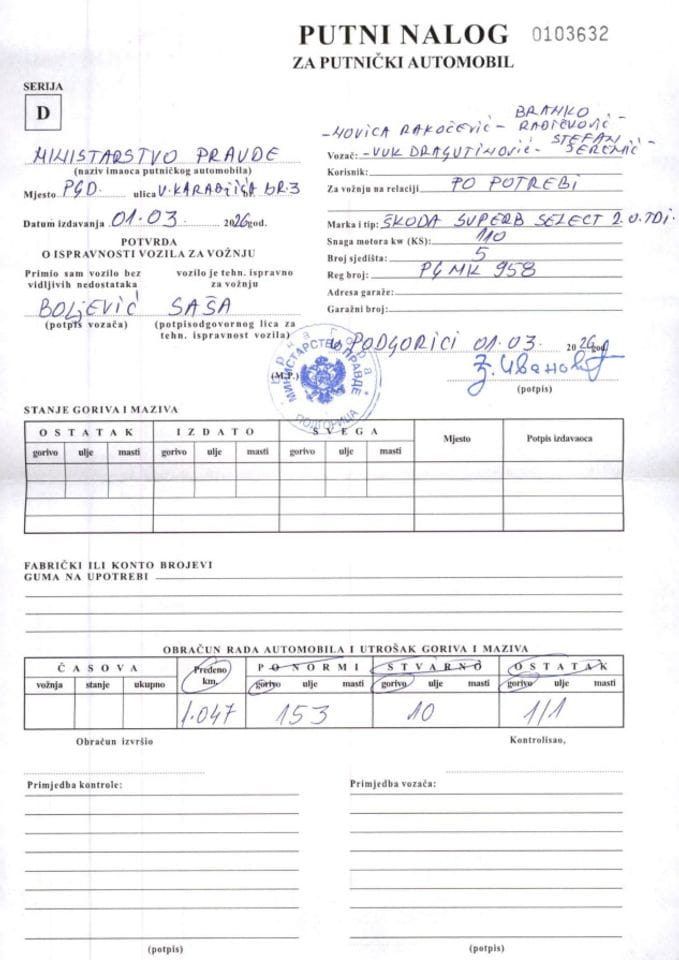 PUTNI NALOG 0103632
ZA PUTNIČKI AUTOMOBIL
SERIJA
D
MINISTARSTVO PRAVDE
(naziv imaoca putničkog automobila)
Mjesto PGD. ulica V. KARADŽIĆA BR.3
Datum izdavanja 01.03. 2026 god.
POTVRDA
O ISPRAVNOSTI VOZILA ZA VOŽNJU
Primio sam vozilo bez vidljivih nedostataka
vozilo je tehn. ispravno za vožnju
BOLJEVIĆ SAŠA
(potpis vozača) (potpisodgovornog lica za
tehn. ispravnost vozila)
BRANKO
-NOVICA RAKOČEVIĆ- RADIČUOVIĆ -
STEFAN -
Vozač: -VUK DRAGUTINOVIĆ- ŠEREMIĆ
Korisnik:
Za vožnju na relaciji PO POTREBI
Marka i tip: ŠKODA SUPERB SELECT 2.0.TDI.
Snaga motora kw (KS): 110
Broj sjedišta: 5
Reg broj: PG MK 958
Adresa garaže:
Garažni broj:
U PODGORICI 01.03. 2026 god
(M.P.)
Црна Гора
МИНИСТАРСТВО ПРАВДЕ
ПОДГОРИЦА
(potpis)
STANJE GORIVA I MAZIVA
OSTATAK IZDATO SVEGA Mjesto Potpis izdavaoca
gorivo ulje masti gorivo ulje masti gorivo ulje masti
FABRIČKI ILI KONTO BROJEVI
GUMA NA UPOTREBI
OBRAČUN RADA AUTOMOBILA I UTROŠAK GORIVA I MAZIVA
ČASOVA Pređeno km. PO NORMI STVARNO OSTATAK
vožnja stanje ukupno gorivo ulje masti gorivo ulje masti gorivo ulje masti
1.047 153 10 1/1
Obračun izvršio Kontrolisao,
Primjedba kontrole: Primjedba vozača:
(potpis) (potpis)